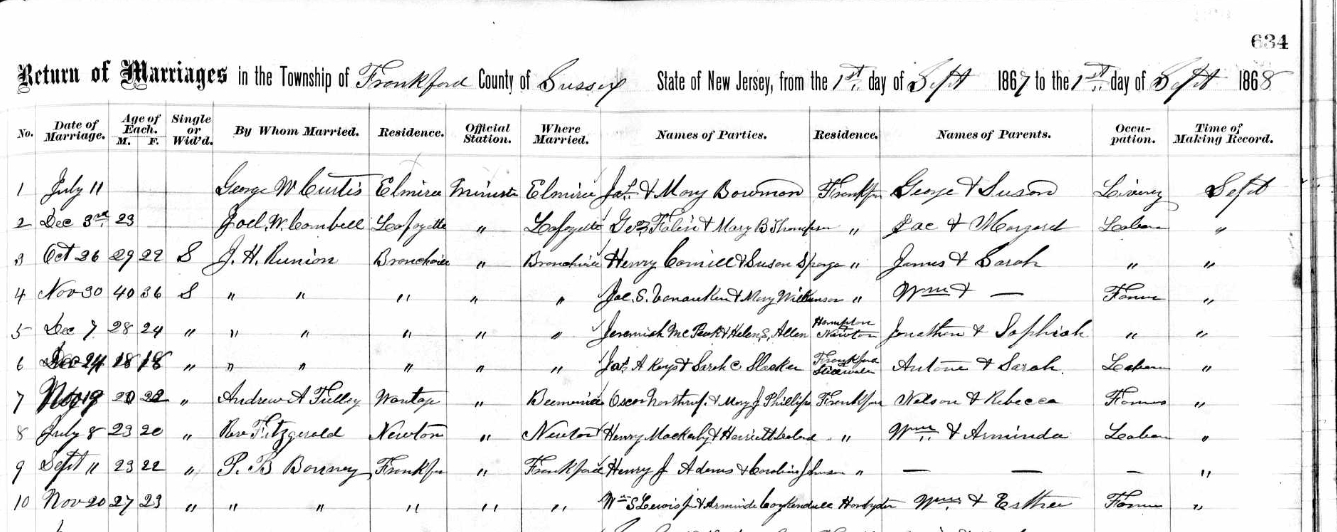 634
Return of Marriages in the Township of Frankford County of Sussex State of New Jersey, from the 1st day of Sept 1867 to the 1st day of Sept 1868
No. Date of Marriage. Age of Each. M. F. Single or Wid'd. By Whom Married. Residence. Official Station. Where Married. Names of Parties. Residence. Names of Parents. Occupation. Time of Making Record.
1 July 11 George W Curtis Elmira Minister Elmira Jas. & Mary Bowman George & Susan Sept
2 Dec 3rd 23 Joel W. Lafayette " Lafayette Geo & Mary B Thompson " Jac & Margaret "
3 Oct 26 29 22 S J. H. Runion " Henry & Susan " James & Sarah " "
4 Nov 30 40 36 S " " " " " Mary Wilkinson " Wm & — "
5 Dec 7 28 24 " " " " " " Jeremiah & Helen S. Allen Hampton Newton Jonathan & Sophiah " "
6 Dec 24 18 18 " " " " " " Jas. A Keys & Sarah C Frankford & Sarah "
7 Nov 19 20 22 " Andrew A " Oscar Northrup & Mary J Phillips Watson & Rebecca "
8 July 8 23 20 " Rev Fitzgerald Newton " Newton Henry & Harriett " Wm & Arminda "
9 Sept 11 23 22 " P. B " Frankford Henry J Adams & Caroline Johnson " — — "
10 Nov 20 27 23 " " " " " " Wm S Lewis Jr & Wm & Esther "